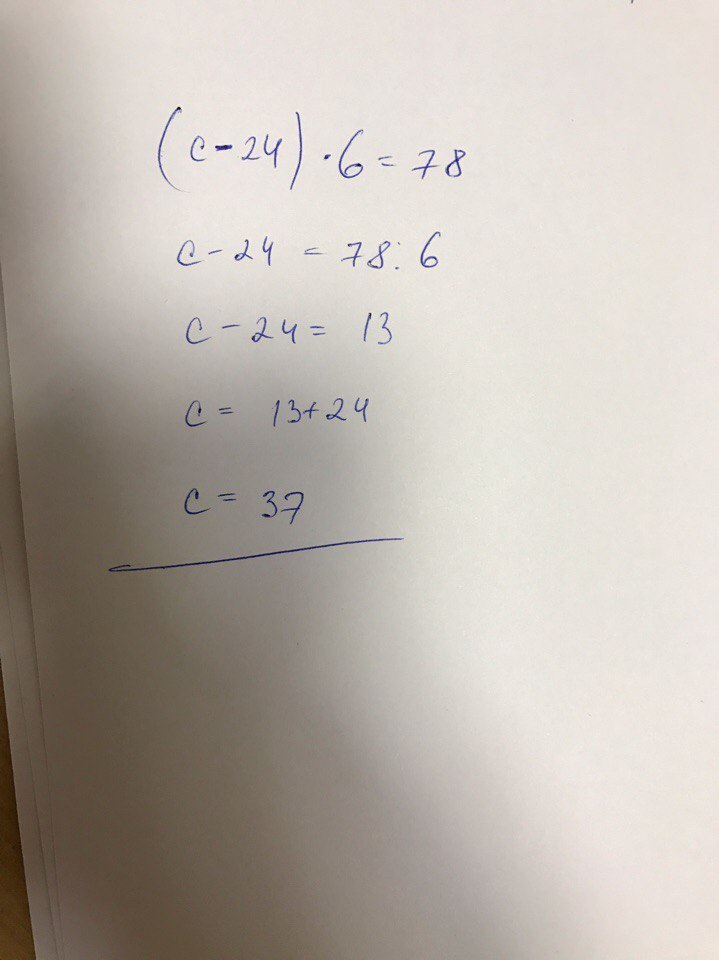 (c-24)·6=78
c-24 = 78:6
c-24= 13
c= 13+24
c= 37